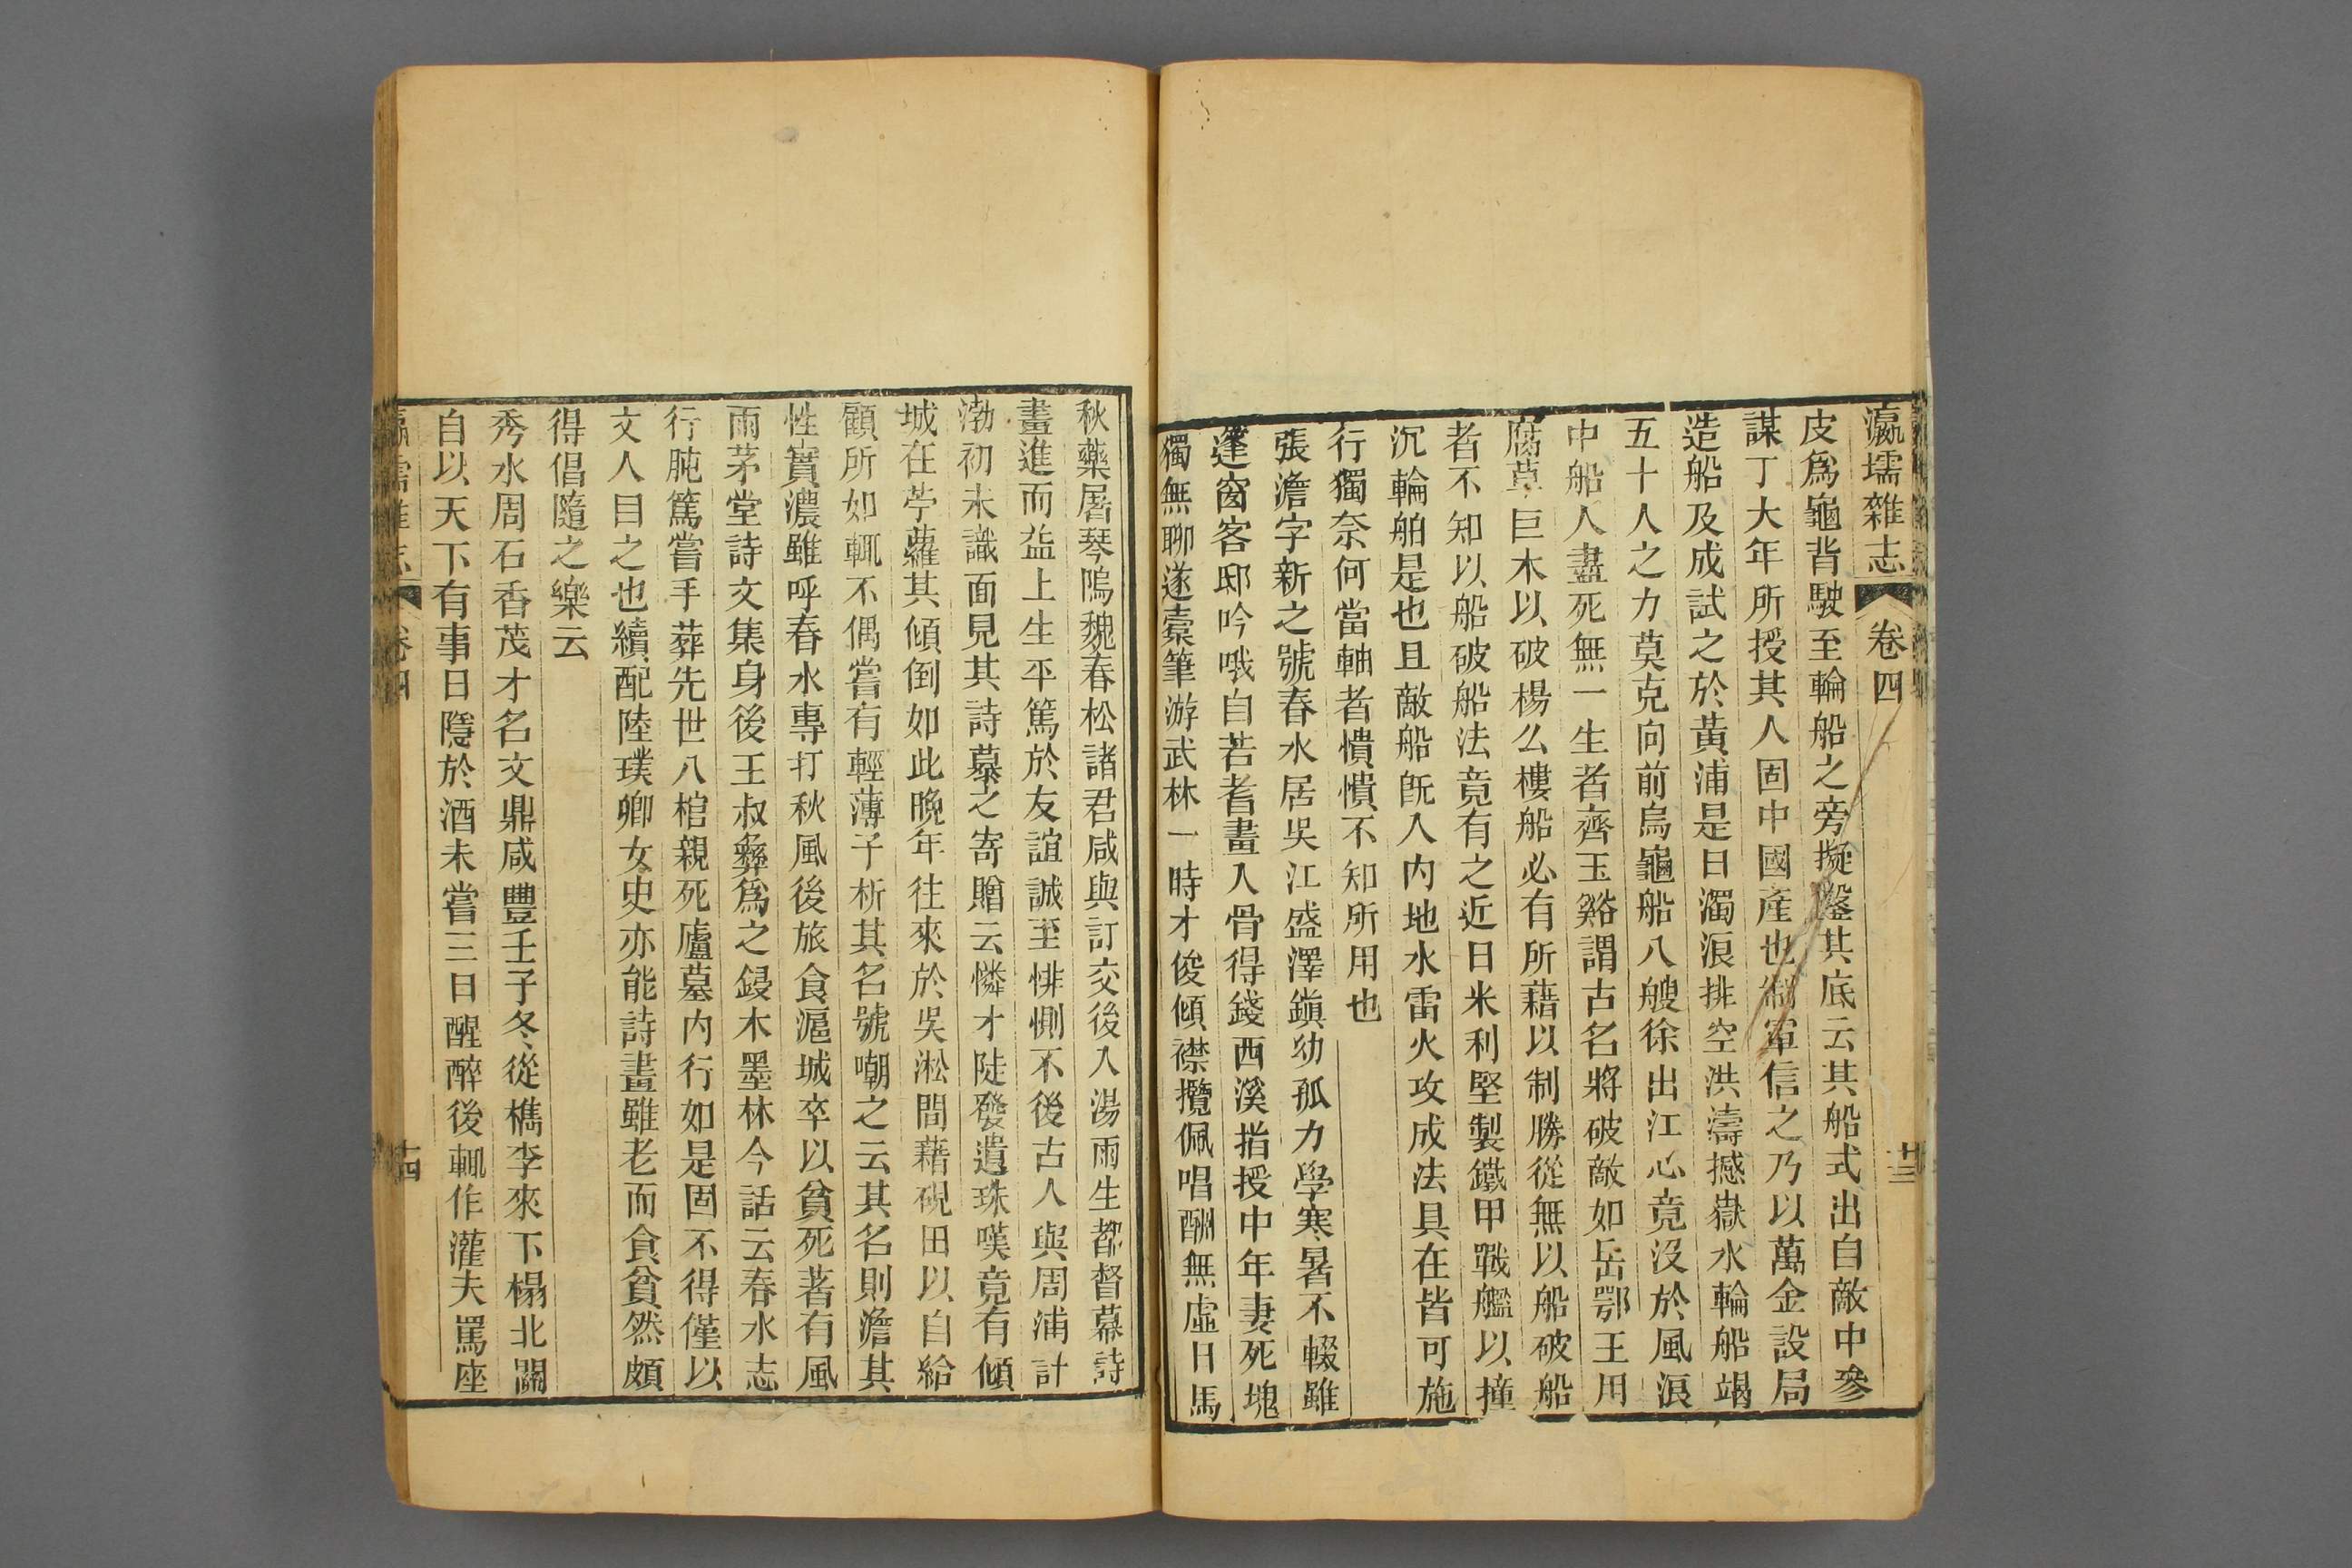 瀛壖雜志 卷四 十三
皮爲龜背駛至輪船之旁擬鑿其底云其船式出自敵中參
謀丁大年所授其人固中國產也制軍信之乃以萬金設局
造船及成試之於黃浦是日濁浪排空洪濤撼嶽水輪船竭
五十人之力莫克向前烏龜船八艘徐出江心竟沒於風浪
中船人盡死無一生者齊玉谿謂古名將破敵如岳鄂王用
腐草巨木以破楊么樓船必有所藉以制勝從無以船破船
者不知以船破船法竟有之近日米利堅製鐵甲戰艦以撞
沉輪舶是也且敵船旣入內地水雷火攻成法具在皆可施
行獨奈何當軸者憒憒不知所用也
張澹字新之號春水居吳江盛澤鎭幼孤力學寒暑不輟雖
篷窗客邸吟哦自若耆畫入骨得錢西溪指授中年妻死塊
獨無聊遂槖筆游武林一時才俊傾襟攬佩唱酬無虛日馬
秋藥屠琴塢魏春松諸君咸與訂交後入湯雨生都督幕詩
畫進而益上生平篤於友誼誠至悱惻不後古人與周浦計
渤初未識面見其詩慕之寄贈云憐才陡發遺珠嘆竟有傾
城在苧蘿其傾倒如此晚年往來於吳淞間藉硯田以自給
顧所如輒不偶嘗有輕薄子析其名號嘲之云其名則澹其
性實濃雖呼春水專打秋風後旅食滬城卒以貧死著有風
雨茅堂詩文集身後王叔彝爲之鋟木墨林今話云春水志
行肫篤嘗手葬先世八棺親死廬墓内行如是固不得僅以
文人目之也續配陸璞卿女史亦能詩畫雖老而食貧然頗
得倡隨之樂云
秀水周石香茂才名文鼎咸豐壬子冬從檇李來下榻北關
自以天下有事日隱於酒未嘗三日醒醉後輒作灌夫罵座
瀛壖雜志 卷四 十四